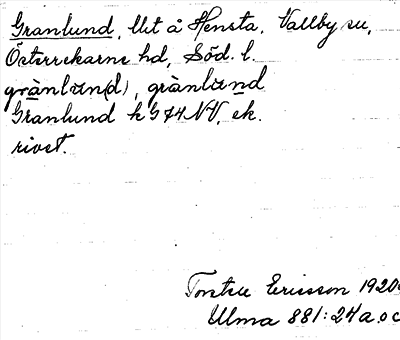 Granlund, llit å Hensta, Vallby sn,
Österrekarne hd, Söd. l.
grànlun(d), grànlund
Granlund k G 74 NV, ek.
rivet.
Torsten Ericsson 1920
Ulma 881:24a.o c